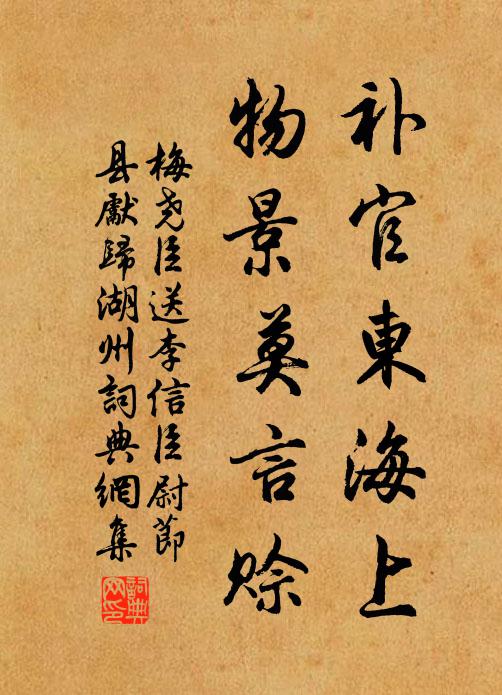 补官東海上
物景莫言赊
梅尧臣送李信臣尉節
县獻歸湖州詞典網集
詞典網印